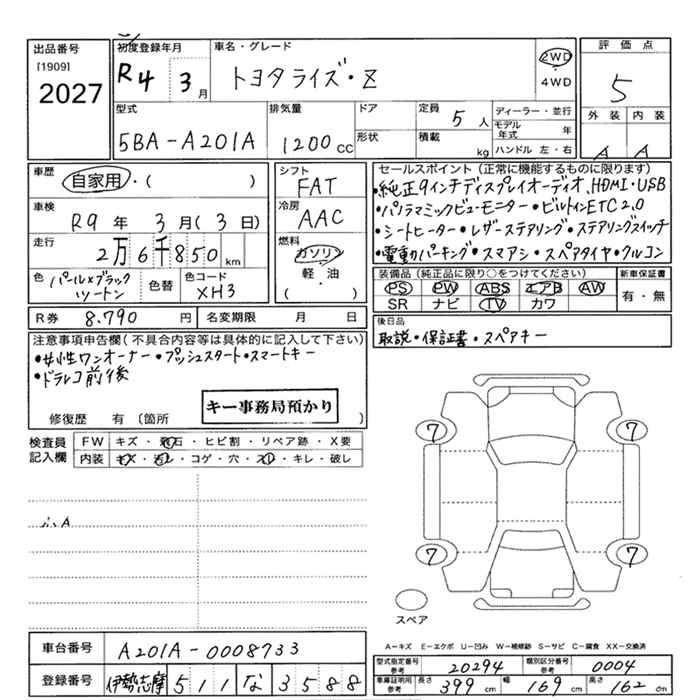 出品番号
[1909]
2027
初度登録年月
R4 3月
車名・グレード
トヨタライズ・Z
2WD
4WD
評価点
5
外装 内装
A A
型式
5BA-A201A
排気量
1200 CC
ドア
形状
定員 5人
積載 kg
ディーラー・並行
モデル年式 年
ハンドル 左・右
車歴
自家用・( )
車検
R9年3月(3日)
走行
2万6千850km
色
パール×ブラック
ツートン
色替
色コード
XH3
シフト
FAT
冷房
AAC
燃料
ガソリン
軽・油
( )
セールスポイント(正常に機能するものに限ります)
・純正9インチディスプレイオーディオ、HDMI・USB
・パノラミックビューモニター・ビルトインETC2.0
・シートヒーター・レザーステアリング・ステアリングスイッチ
・電動パーキング・スマアシ・スペアタイヤ・クルコン
装備品(純正品に限り○をつけてください)
PS PW ABS エアB AW
SR ナビ TV カワ
新車保証書
有・無
R券 8.790円
名変期限 月 日
後日品
取説・保証書・スペアキー
注意事項申告欄(不具合内容等は具体的に記入して下さい)
・女性ワンオーナー・プッシュスタート・スマートキー
・ドラレコ前後
キー事務局預かり
修復歴 有(箇所 )
検査員
記入欄
FW キズ・飛石・ヒビ割・リペア跡・X要
内装 キズ・汚レ・コゲ・穴・スレ・キレ・破レ
7 7
7 7
スペア
A-キズ E-エクボ U-凹み W-補修跡 S-サビ C-腐食 XX-交換済
車台番号 A201A-0008733
登録番号 伊勢志摩 511 な 3588
型式指定番号 参考 20294
類別区分番号 参考 0004
車庫証明用 参考 長さ 399cm 幅 169cm 高さ 162cm